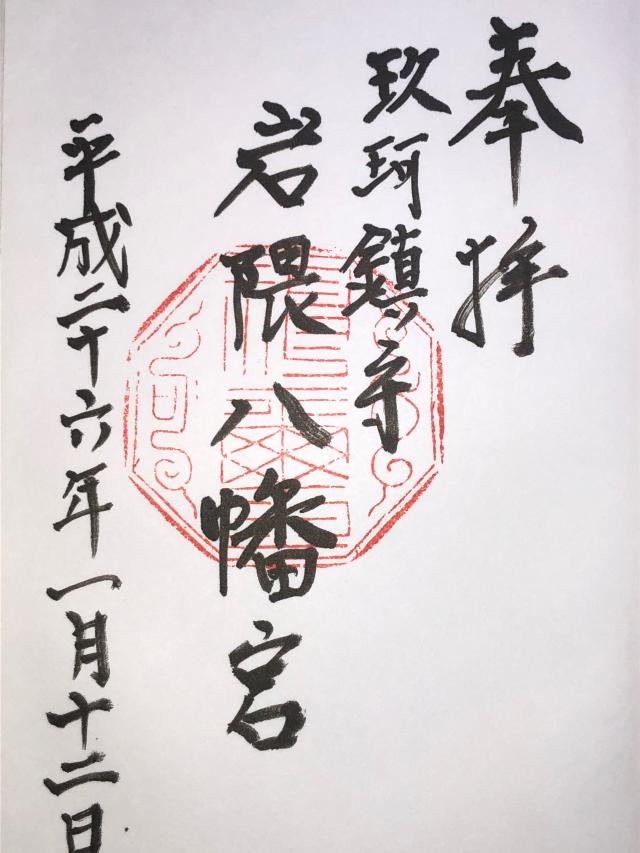 奉拝
玖珂鎮ノ守
岩隈八幡宮
平成二十六年一月十二日